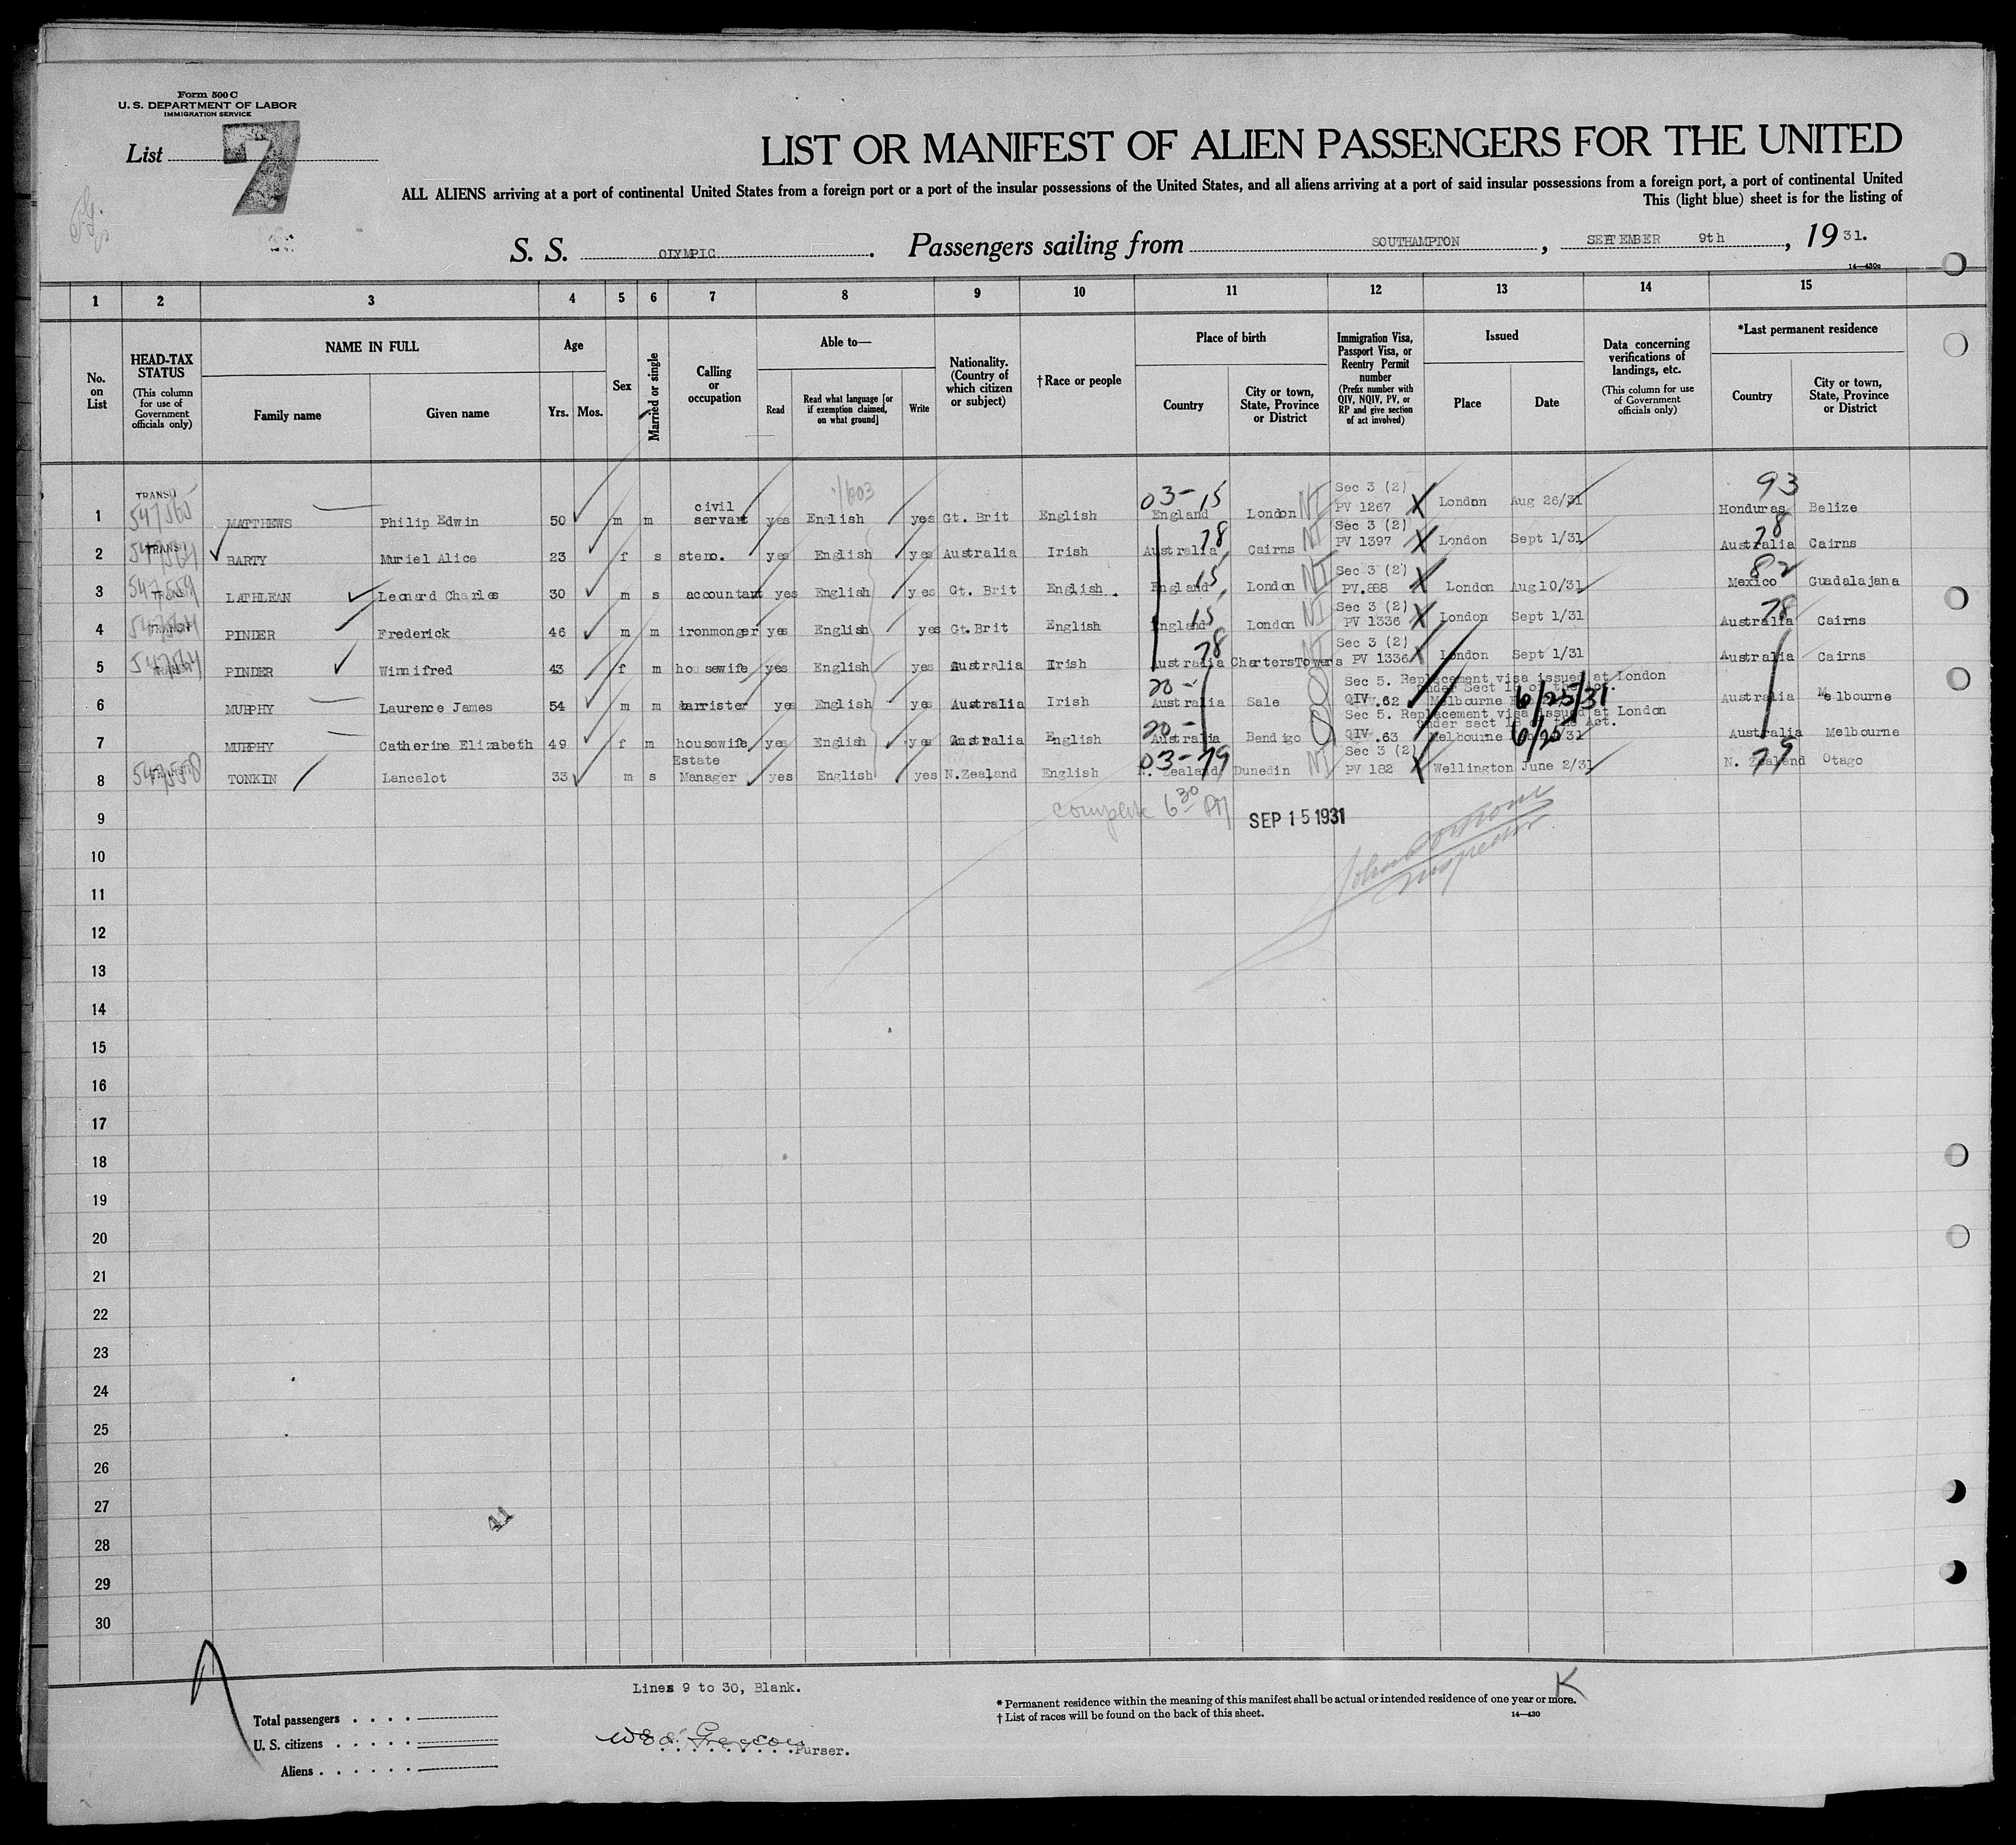 Form 500 C
U. S. DEPARTMENT OF LABOR
IMMIGRATION SERVICE
List 7
LIST OR MANIFEST OF ALIEN PASSENGERS FOR THE UNITED
ALL ALIENS arriving at a port of continental United States from a foreign port or a port of the insular possessions of the United States, and all aliens arriving at a port of said insular possessions from a foreign port, a port of continental United
This (light blue) sheet is for the listing of
S. S. OLYMPIC. Passengers sailing from SOUTHAMPTON, SEPTEMBER 9th, 19 31.
14—430c
1 2 3 4 5 6 7 8 9 10 11 12 13 14 15
No. on List
HEAD-TAX STATUS (This column for use of Government officials only)
NAME IN FULL
Family name
Given name
Age
Yrs. Mos.
Sex
Married or single
Calling or occupation
Able to—
Read
Read what language [or if exemption claimed, on what ground]
Write
Nationality. (Country of which citizen or subject)
†Race or people
Place of birth
Country
City or town, State, Province or District
Immigration Visa, Passport Visa, or Reentry Permit number (Prefix number with QIV, NQIV, PV, or RP and give section of act involved)
Issued
Place
Date
Data concerning verifications of landings, etc. (This column for use of Government officials only)
*Last permanent residence
Country
City or town, State, Province or District
1 TRANSIT 547560 MATTHEWS Philip Edwin 50 m m civil servant yes English yes Gt. Brit English 03-15 England London NI Sec 3 (2) PV 1267 London Aug 26/31 93 Honduras Belize
2 TRANSIT BARTY Muriel Alice 23 f s steno. yes English yes Australia Irish 78 Australia Cairns NI Sec 3 (2) PV 1397 London Sept 1/31 78 Australia Cairns
3 547559 LATHLEAN Leonard Charles 30 m s accountant yes English yes Gt. Brit English. 15 England London NI Sec 3 (2) PV.888 London Aug10/31 82 Mexico Guadalajana
4 PINDER Frederick 46 m m ironmonger yes English yes Gt.Brit English 15 England London NI Sec 3 (2) PV 1336 London Sept 1/31 78 Australia Cairns
5 PINDER Winnifred 43 f m housewife yes English yes Australia Irish 78 Australia ChartersTowers NI Sec 3 (2) PV 1336 London Sept 1/31 Australia Cairns
6 MURPHY Laurence James 54 m m barrister yes English yes Australia Irish 20- Australia Sale Sec 5. Replacement visa issued at London under Sect of the Act. QIV.62 Melbourne 6/25/31 Australia Melbourne
7 MURPHY Catherine Elizabeth 49 f m housewife yes English yes Australia English 20- Australia Bendigo Sec 5. Replacement visa issued at London under sect of the Act. QIV.63 Melbourne 6/25/31 Australia Melbourne
8 547558 TONKIN Lancelot 33 m s Estate Manager yes English yes N.Zealand English 03-79 N. Zealand Dunedin NI Sec 3 (2) PV 182 Wellington June 2/31 79 N. Zealand Otago
9 complete 6 30 PM SEP 15 1931
Inspector
10
11
12
13
14
15
16
17
18
19
20
21
22
23
24
25
26
27
41
28
29
30
Lines 9 to 30, Blank.
K
* Permanent residence within the meaning of this manifest shall be actual or intended residence of one year or more.
† List of races will be found on the back of this sheet.
14—430
Total passengers
U. S. citizens
Aliens
Purser.